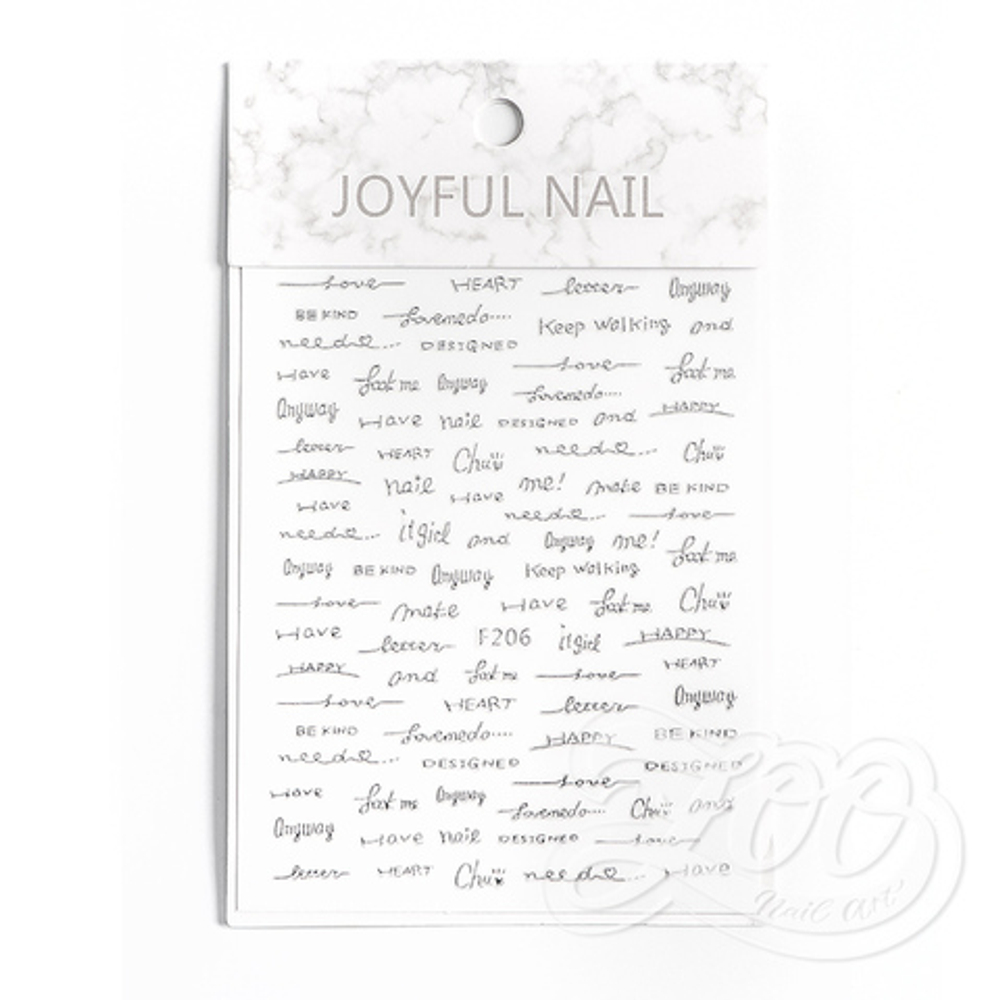 JOYFUL NAIL
Love HEART letter Anyway
BE KIND Lovemedo.... Keep walking and
need... DESIGNED
Love
Have Look me Anyway Look me
Lovemedo....
Anyway Have nail DESIGNED and HAPPY
letter HEART Chu need... Chu
HAPPY nail Have me! make BE KIND
Have need... Love
need... itgirl and Anyway me! Look me
Anyway BE KIND Anyway Keep walking
Love make Have Look me Chu
Have letter F206 itgirl HAPPY
HAPPY and Look me Love HEART
Love HEART letter Anyway
BE KIND Lovemedo.... HAPPY BE KIND
need... DESIGNED DESIGNED
Love
Have Look me Anyway Lovemedo.... Chu and
Anyway Have nail DESIGNED Love
letter HEART Chu need... Have
Zoo
Nail Art